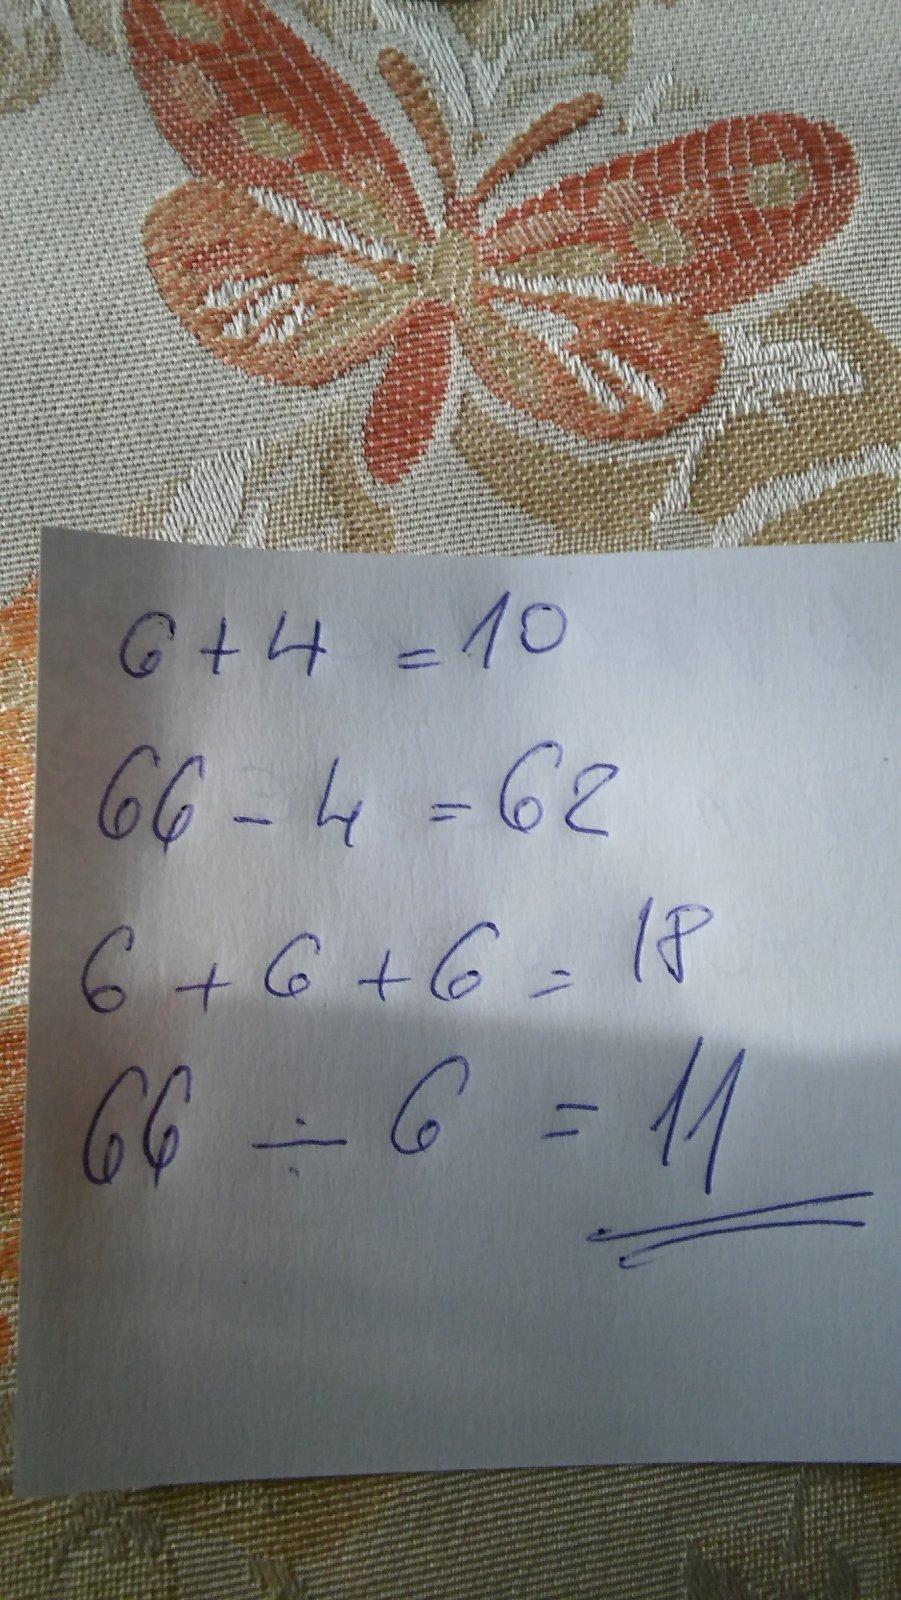 6 + 4 = 10
66 - 4 = 62
6 + 6 + 6 = 18
66 ÷ 6 = 11